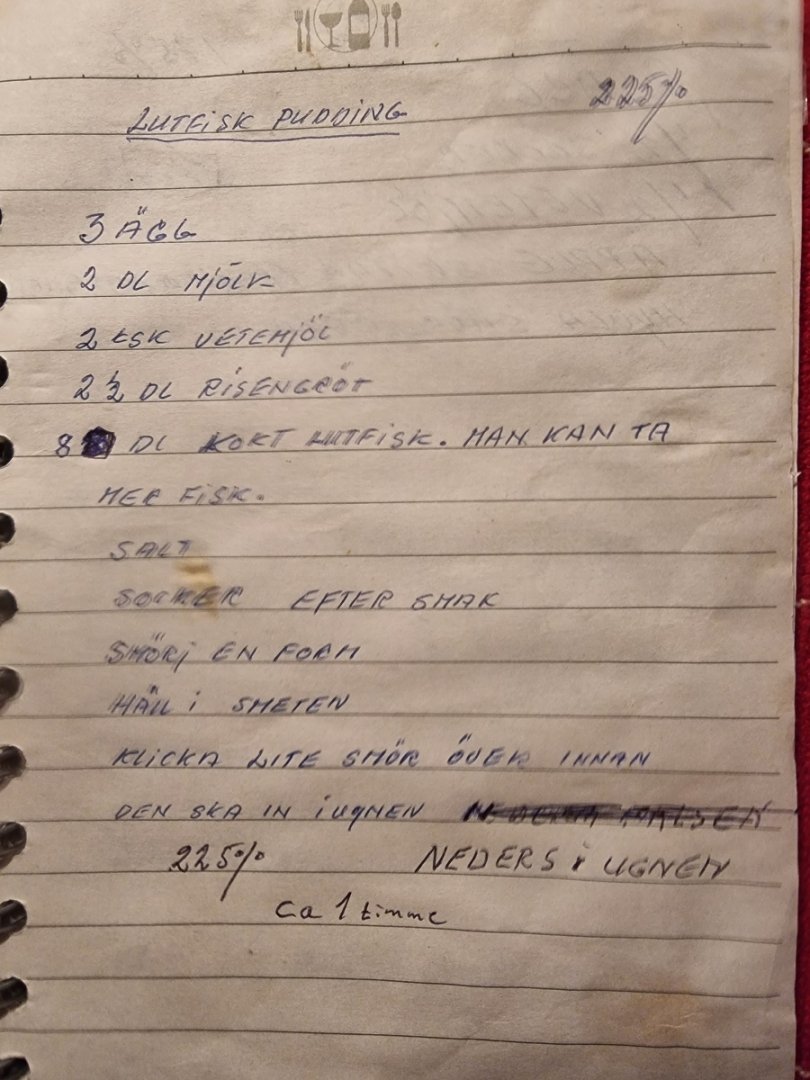 225%
LUTFISK PUDDING
3 ÄGG
2 DL MJÖLK
2 tSK VETEMJÖL
2 ½ DL RISENGRÖT
8 DL KOKT LUTFISK. MAN KAN TA
MER FISK.
SALT
SOCKER EFTER SMAK
SMÖRJ EN FORM
HÄLL i SMETEN
KLICKA LITE SMÖR ÖVER INNAN
DEN SKA IN i UGNEN
225% NEDERS i UGNEN
ca 1 timme